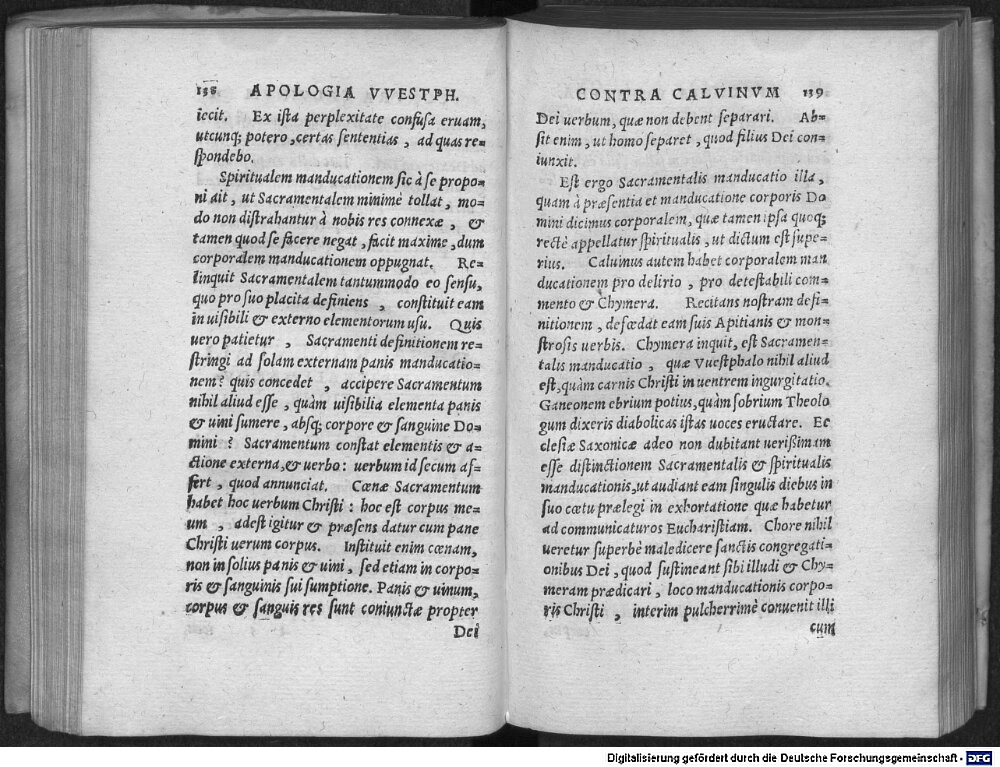 138 APOLOGIA VVESTPH.
iecit. Ex ista perplexitate confusa eruam,
utcunq; potero, certas sententias, ad quas re=
spondebo.
Spiritualem manducationem sic à se propo=
ni ait, ut Sacramentalem minimè tollat, mo=
do non distrahantur à nobis res connexæ, &
tamen quod se facere negat, facit maximè, dum
corporalem manducationem oppugnat. Re=
linquit Sacramentalem tantummodo eo sensu,
quo pro suo placita definiens, constituit eam
in uisibili & externo elementorum usu. Quis
uero patietur, Sacramenti definitionem re=
stringi ad solam externam panis manducatio=
nem? quis concedet, accipere Sacramentum
nihil aliud esse, quàm uisibilia elementa panis
& uini sumere, absq; corpore & sanguine Do=
mini? Sacramentum constat elementis & a=
ctione externa, & uerbo: uerbum id secum af=
fert, quod annunciat. Cœnæ Sacramentum
habet hoc uerbum Christi: hoc est corpus me=
um, adest igitur & præsens datur cum pane
Christi uerum corpus. Instituit enim cœnam,
non in solius panis & uini, sed etiam in corpo=
ris & sanguinis sui sumptione. Panis & uinum,
corpus & sanguis res sunt coniunctæ propter
Dei
CONTRA CALVINVM 139
Dei uerbum, quæ non debent separari. Ab=
sit enim, ut homo separet, quod filius Dei con=
iunxit.
Est ergo Sacramentalis manducatio illa,
quam à præsentia et manducatione corporis Do
mini dicimus corporalem, quæ tamen ipsa quoq;
rectè appellatur spiritualis, ut dictum est supe=
rius. Caluinus autem habet corporalem man
ducationem pro delirio, pro detestabili com=
mento & Chymera. Recitans nostram defi=
nitionem, defœdat eam suis Apitianis & mon=
strosis uerbis. Chymera inquit, est Sacramen=
talis manducatio, quæ Vuestphalo nihil aliud
est, quàm carnis Christi in uentrem ingurgitatio.
Ganeonem ebrium potius, quàm sobrium Theolo
gum dixeris diabolicas istas uoces eructare. Ec
clesiæ Saxonicæ adeo non dubitant uerißimam
esse distinctionem Sacramentalis & spiritualis
manducationis, ut audiant eam singulis diebus in
suo cœtu prælegi in exhortatione quæ habetur
ad communicaturos Eucharistiam. Chore nihil
ueretur superbè maledicere sanctis congregati=
onibus Dei, quod sustineant sibi illudi & Chy=
meram prædicari, loco manducationis corpo=
ris Christi, interim pulcherrimè conuenit illi
cum
Digitalisierung gefördert durch die Deutsche Forschungsgemeinschaft - DFG